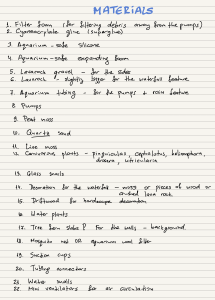 MATERIALS
1. Filter foam (for filtering debris away from the pumps)
2. Cyanoacrylate glue (superglue)
3. Aquarium - safe silicone
4. Aquarium - safe expanding foam
5. Lavarock gravel - for the sides
6. Lavarock - slightly bigger for the waterfall feature
7. Aquarium tubing - for the pumps + rain feature
8. Pumps
9. Peat moss
10. Quartz sand
11. Live moss
12. Carnivorous plants - pinguiculas, cephalotus, heliamphora,
drosera, utricularia
13. Glass snails
14. Decoration for the waterfall - moss or pieces of wood or
crushed lava rock
15. Driftwood for hardscape decoration
16. Water plants
17. Tree fern slabs for the walls - background
18. Mosquito net OR aquarium wool filter
19. Suction cups
20. Tubing connectors
21. Water snails
22. Mini ventilators for air circulation